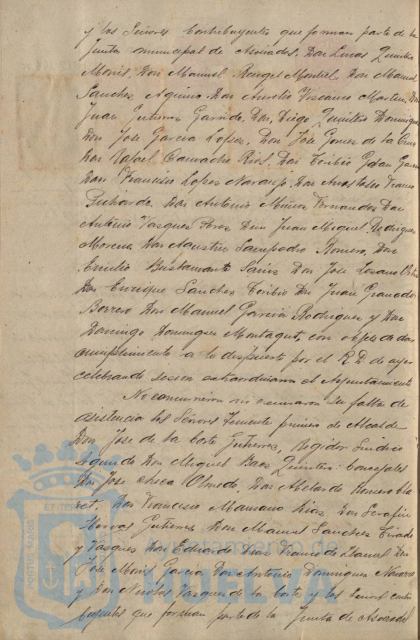 y los Señores Contribuyentes que forman parte de la
Junta municipal de Asociados. Don Lucas Quintero
Monis, Don Manuel Rangel Montiel, Don Manuel
Sanchez Aquino, Don Aurelio Vizcaino Martin, Don
Juan Gutierrez Garrido, Don Diego Quintero Dominguez,
Don Jose Garcia Lopez, Don Jose Gomez de la Cruz
Don Rafael Camacho Don Toribio
Don Francisco Lopez Naranjo, Don Franco
Don Antonio Muñoz Fernandez Don
Antonio Vazquez Perez Don Juan Miguel Rodriguez
Moreno Don Agustin Sampedro Romero, Don
Emilio Bustamante Don Jose Lozano
Don Enrique Sanchez Toribio Don Juan Granado
Borrero Don Manuel Garcia Rodriguez y Don
Domingo Dominguez con objeto de dar
cumplimiento a lo dispuesto por el R.D. de ayer
celebrando sesion extraordinaria el Ayuntamiento
No concurrieron ni escusaron su falta de
asistencia los Señores Teniente primero de Alcalde
Don Jose de la Corte Gutierrez, Regidor Sindico
segundo Don Miguel Baez Quintero: Concejales
Don Jose Checa Olmedo, Don Abelardo Romero
Don Francisco Don Serafin
Gutierrez Don Manuel Sanchez
y Vazquez Don Eduardo Diaz Franco de Llanos, Don
Jose Monis Garcia Don Antonio Dominguez Navarro
y Don Nicolas Vazquez de la Corte y los Señores contri
buyentes que forman parte de la Junta de Asociados
Ayuntamiento de
HUELVA